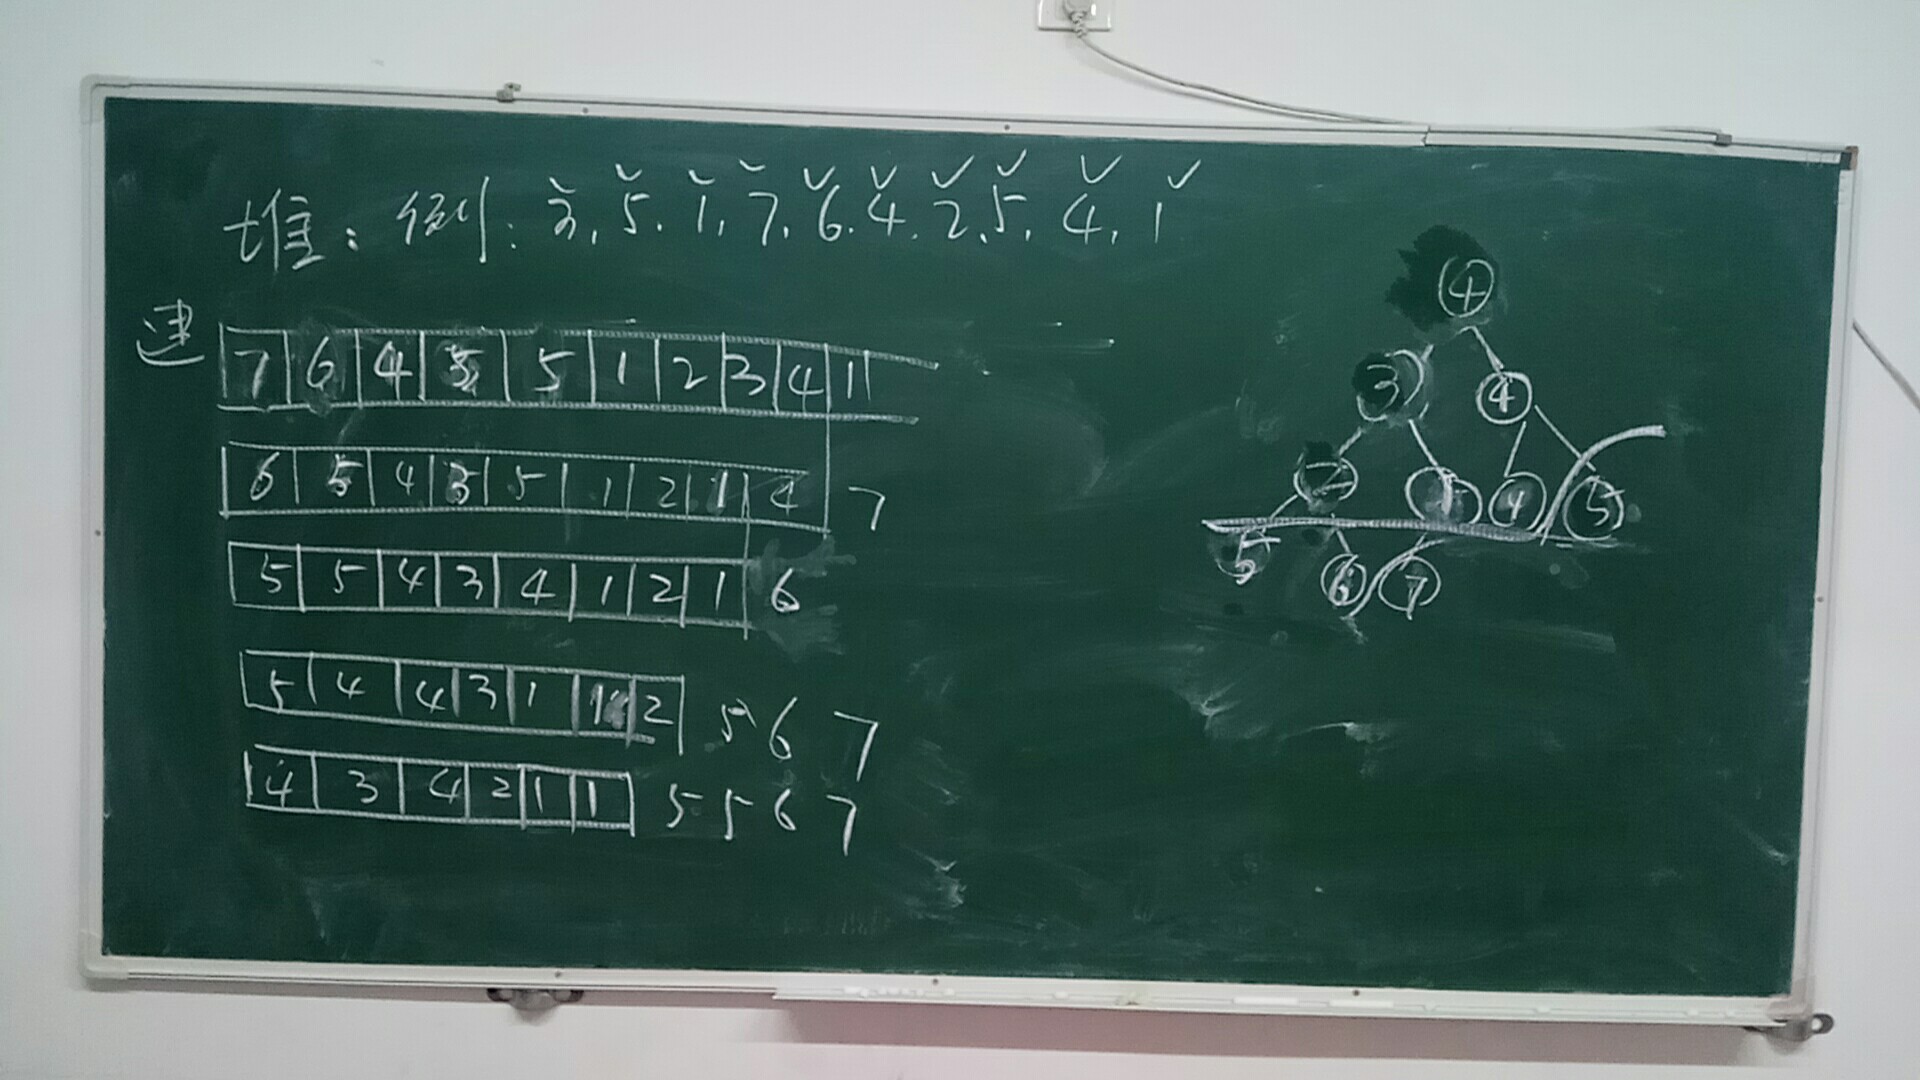 堆：例：3, 5, 1, 7, 6, 4, 2, 5, 4, 1
建 7 6 4 5 5 1 2 3 4 1
6 5 4 3 5 1 2 1 4 7
5 5 4 3 4 1 2 1 6
5 4 4 3 1 1 2 5 6 7
4 3 4 2 1 1 5 5 6 7
4
3 4
2 1 4 5
5 6 7